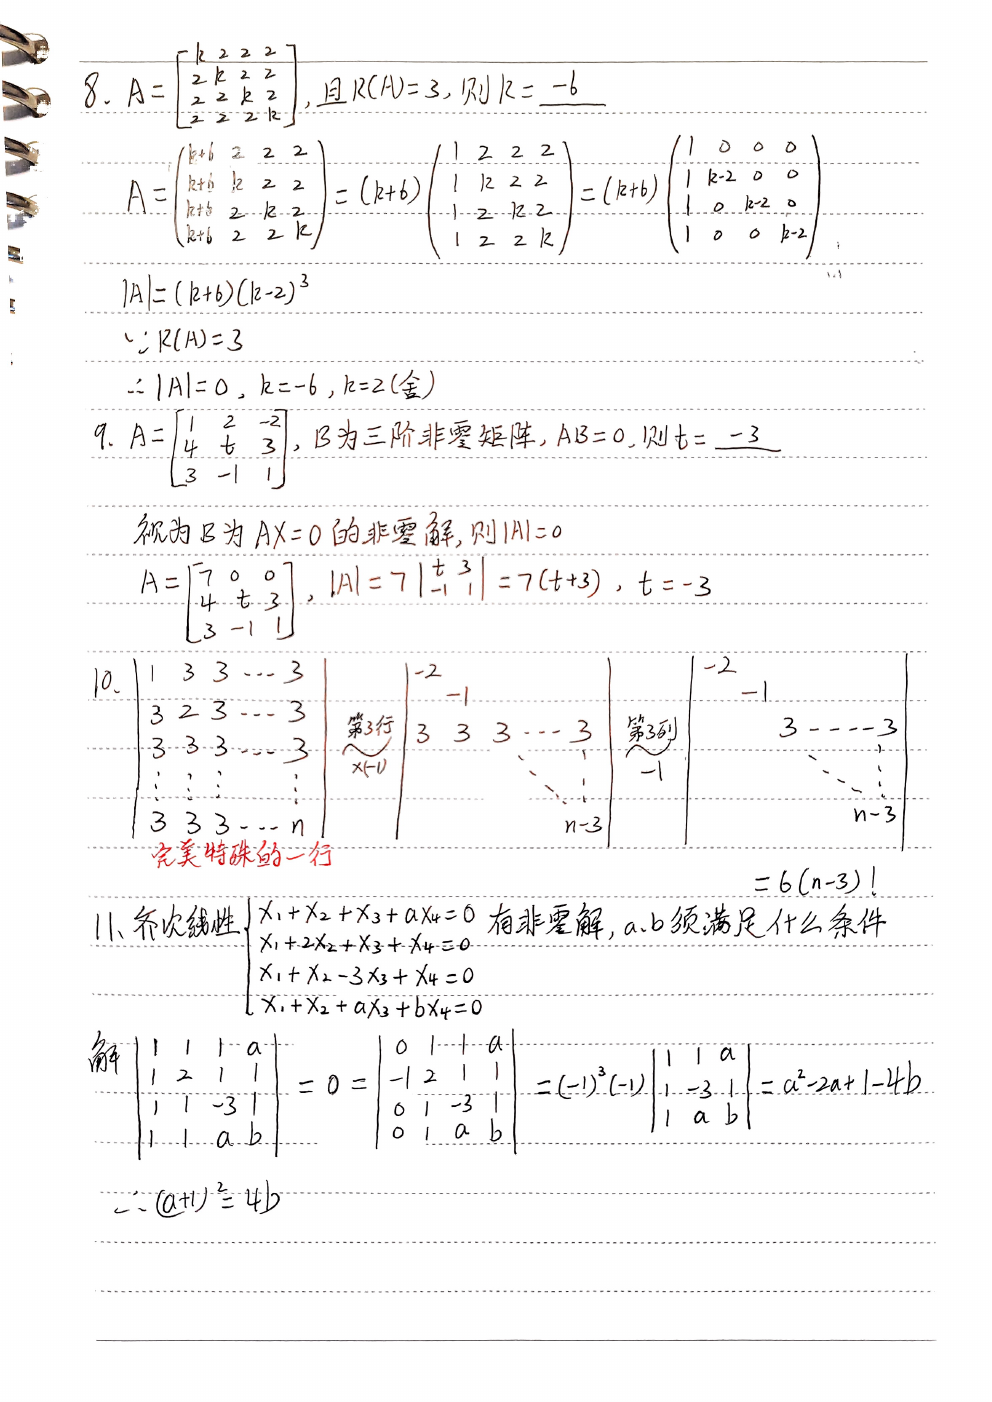 8. A = [k 2 2 2; 2 k 2 2; 2 2 k 2; 2 2 2 k], 且R(A)=3, 则k= -6
A = (k+6 2 2 2; k+6 k 2 2; k+6 2 k 2; k+6 2 2 k) = (k+6) (1 2 2 2; 1 k 2 2; 1 2 k 2; 1 2 2 k) = (k+6) (1 0 0 0; 1 k-2 0 0; 1 0 k-2 0; 1 0 0 k-2)
|A|=(k+6)(k-2)³
∵R(A)=3
∴|A|=0, k=-6, k=2(舍)
9. A = [1 2 -2; 4 t 3; 3 -1 1], B为三阶非零矩阵, AB=0, 则t= -3
视为B为AX=0的非零解, 则|A|=0
A = [7 0 0; 4 t 3; 3 -1 1], |A|=7|t 3; -1 1|=7(t+3), t=-3
10. |1 3 3 ... 3; 3 2 3 ... 3; 3 3 3 ... 3; ⋮ ⋮ ⋮ ⋮; 3 3 3 ... n| 第3行 ×(-1) |-2; -1; 3 3 3 ... 3; ⋱ ⋮; n-3| 第3列 -1 |-2; -1; 3 ---- 3; ⋱ ⋮; n-3|
完美特殊的一行
=6(n-3)!
11、齐次线性 {x₁+x₂+x₃+ax₄=0 有非零解, a.b须满足什么条件
x₁+2x₂+x₃+x₄=0
x₁+x₂-3x₃+x₄=0
x₁+x₂+ax₃+bx₄=0
解 |1 1 1 a; 1 2 1 1; 1 1 -3 1; 1 1 a b| =0= |0 1 1 a; -1 2 1 1; 0 1 -3 1; 0 1 a b| =(-1)³(-1) |1 1 a; 1 -3 1; 1 a b| =a²-2a+1-4b
∴(a+1)²=4b